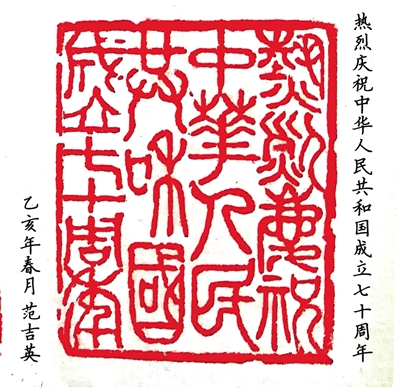 热烈庆祝中华人民共和国成立七十周年
熱烈慶祝
中華人民
共和國
成立七十周年
乙亥年春月 范吉英